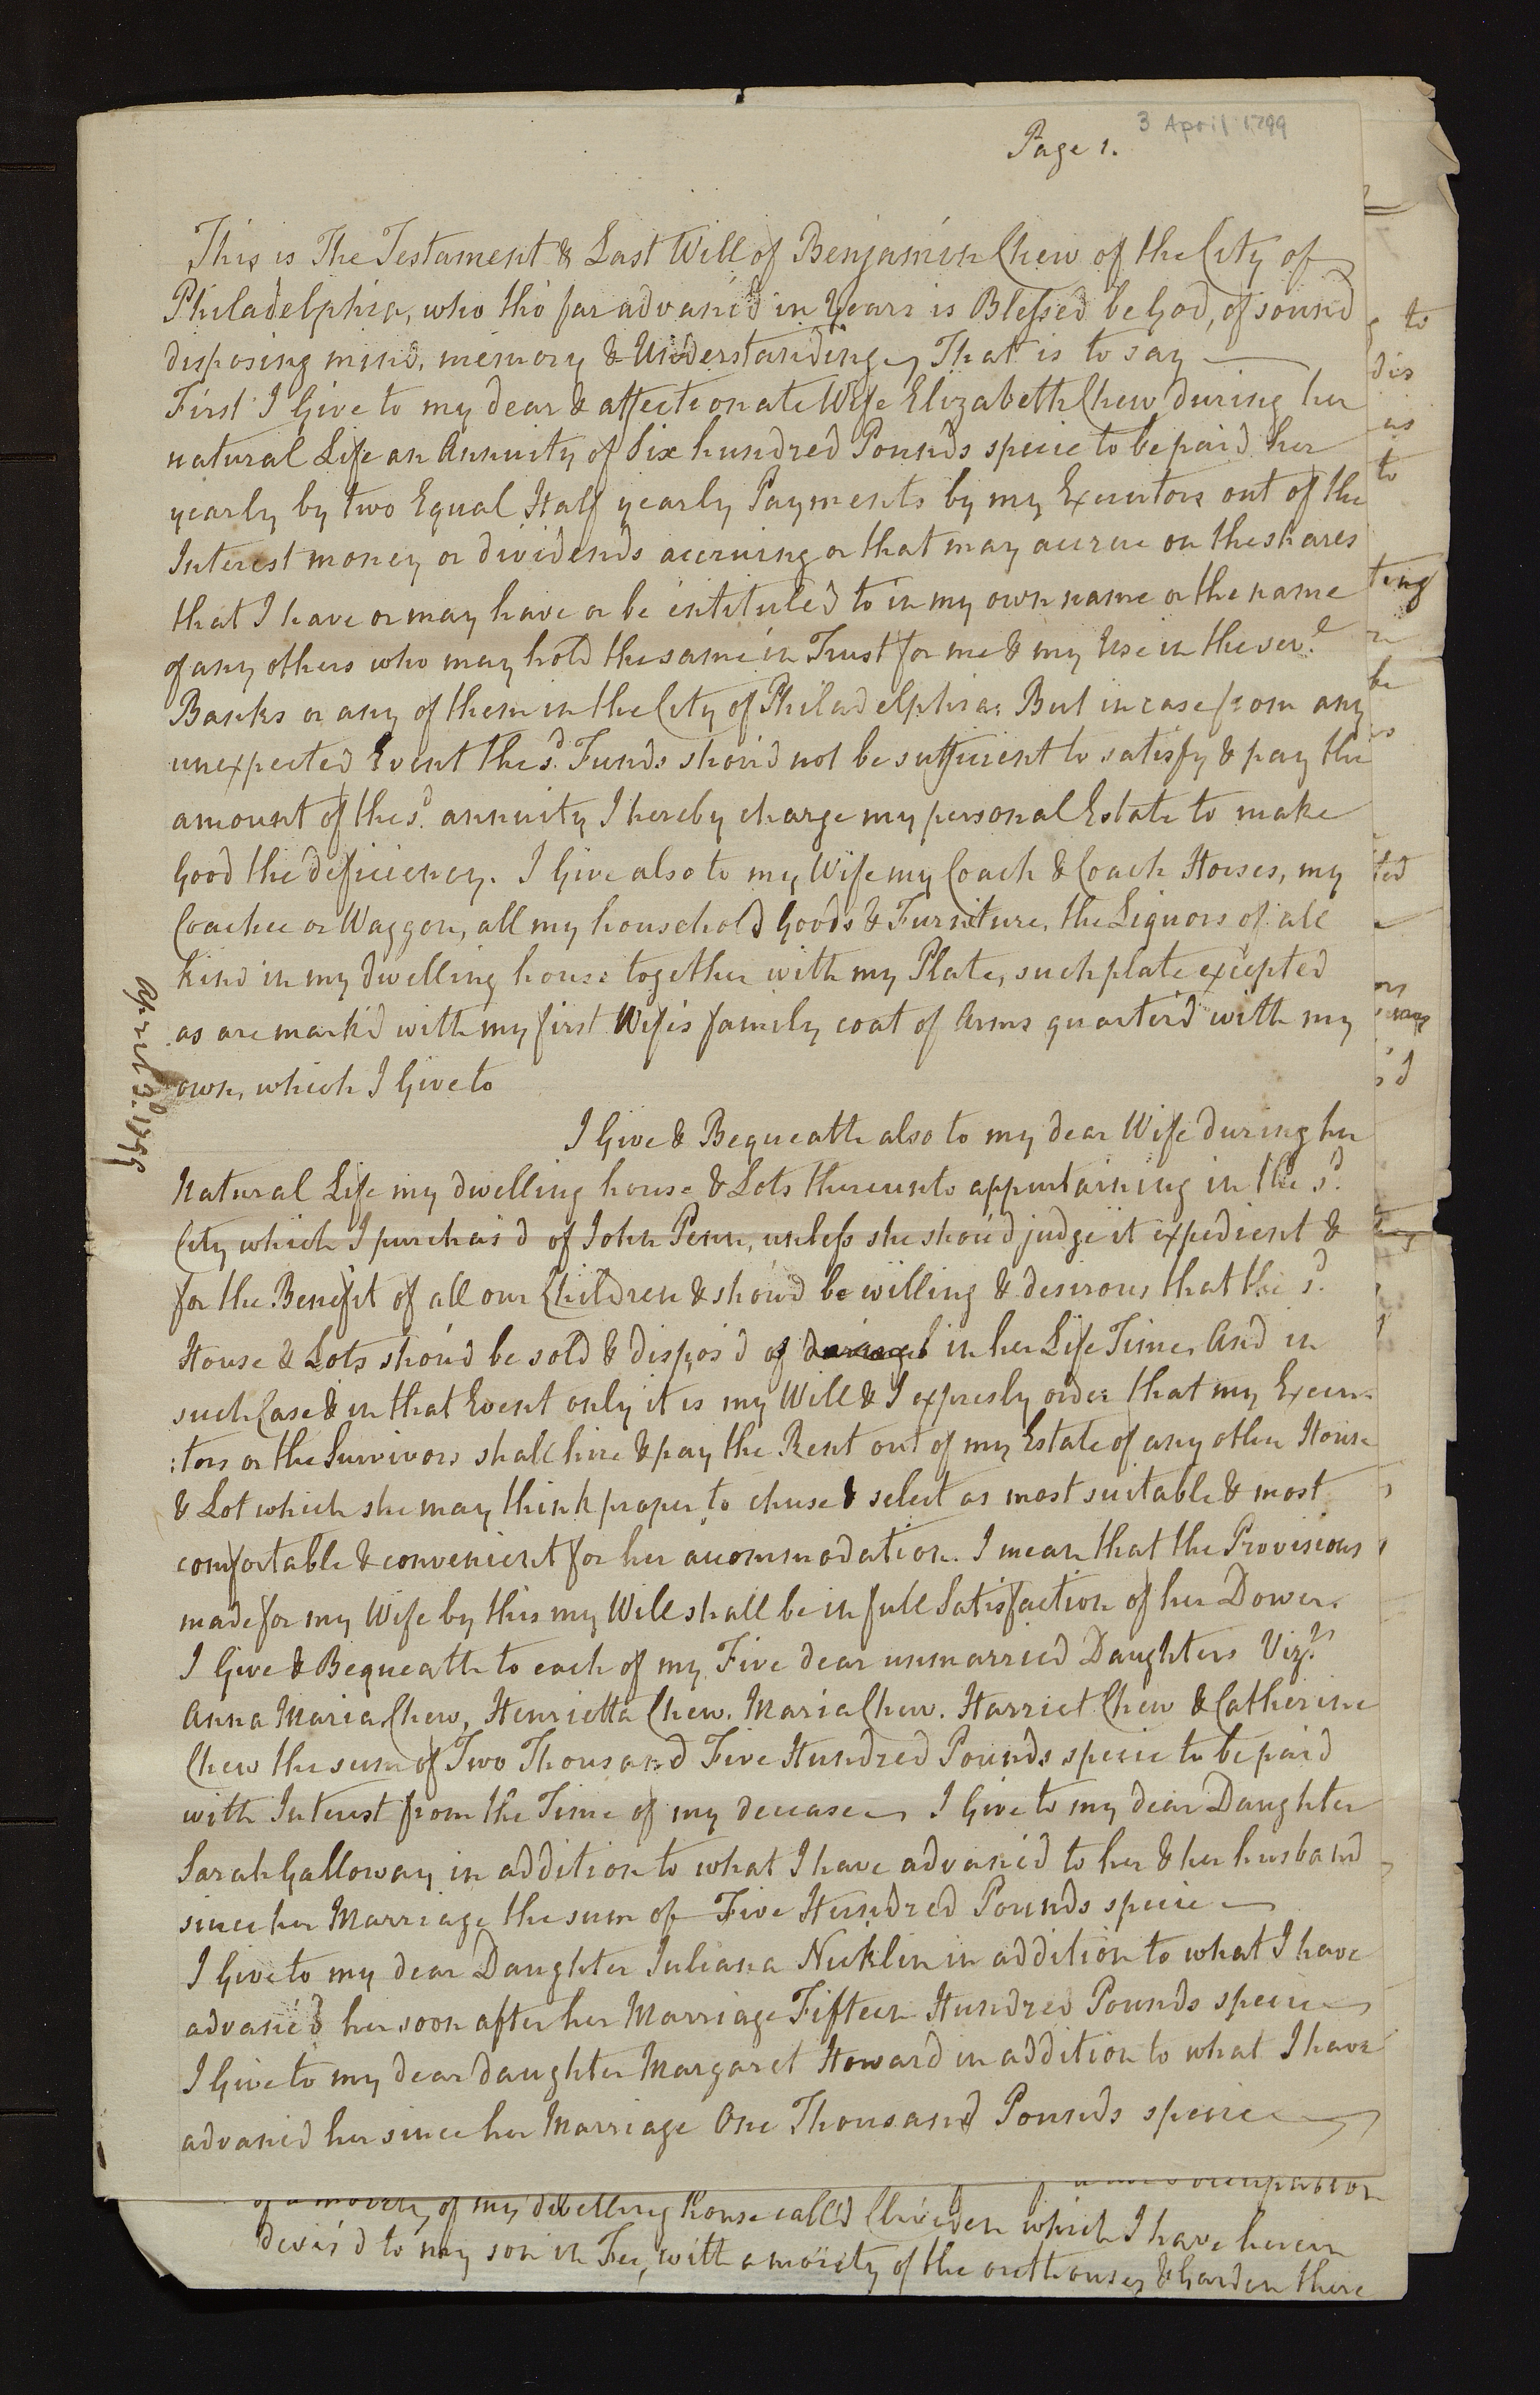 3 April 1799
Page 1.
This is The Testament & Last Will of Benjamin Chew of the City of
Philadelphia, who tho' far advanc'd in Years is Blessed be God, of sound
disposing mind, memory & Understanding, That is to say
First I Give to my dear & affectionate Wife Elizabeth Chew during her
natural Life an Annuity of Six hundred Pounds specie to be paid her
yearly by two Equal Half yearly Payments by my Executors out of the
Interest money or dividends accruing or that may accrue on the shares
that I have or may have or be entituled to in my own name or the name
of any others who may hold the same in Trust for me & my Use in the sev.l
Banks or any of them in the City of Philadelphia: But in case from any
unexpected Event the s.d Funds shou'd not be sufficient to satisfy & pay the
amount of the s.d annuity I hereby charge my personal Estate to make
Good the deficiency. I Give also to my Wife my Coach & Coach Horses, my
Coachee or Waggon, all my household Goods & Furniture, the Liquors of all
kind in my dwelling house together with my Plate, such plate excepted
as are mark'd with my first Wife's family coat of Arms quarter'd with my
own, which I Give to
I Give & Bequeath also to my dear Wife during her
Natural Life my dwelling house & Lots thereunto appurtaining in the s.d
City which I purchas'd of John Penn, unless she shou'd judge it expedient &
for the Benefit of all our Children & shou'd be willing & desirous that the s.d
House & Lots shou'd be sold & dispos'd of in her Life Time, And in
such Case & in that Event only it is my Will & I expresly order that my Execu-
:tors or the Survivors shall hire & pay the Rent out of my Estate of any other House
& Lot which she may think proper to chuse & select as most suitable & most
comfortable & convenient for her accommodation. I mean that the Provisions
made for my Wife by this my Will shall be in full Satisfaction of her Dower.
I Give & Bequeath to each of my Five dear unmarried Daughters Viz.t
Anna Maria Chew, Henrietta Chew. Maria Chew. Harriet Chew & Catherine
Chew the sum of Two Thousand Five Hundred Pounds specie to be paid
with Interest from the Time of my decease, I Give to my dear Daughter
Sarah Galloway in addition to what I have advanc'd to her & her husband
since her Marriage the sum of Five Hundred Pounds specie
I Give to my dear Daughter Juliana Nicklin in addition to what I have
advanc'd her soon after her Marriage Fifteen Hundred Pounds specie
I Give to my dear daughter Margaret Howard in addition to what I have
advanc'd her since her Marriage One Thousand Pounds specie
April 3.d 1799
of a moiety of my dwelling house call'd Cliveden which I have herein
devis'd to my son in Fee, with a moiety of the outhouses & Garden there
to
dis
as
to
ting
be
ted